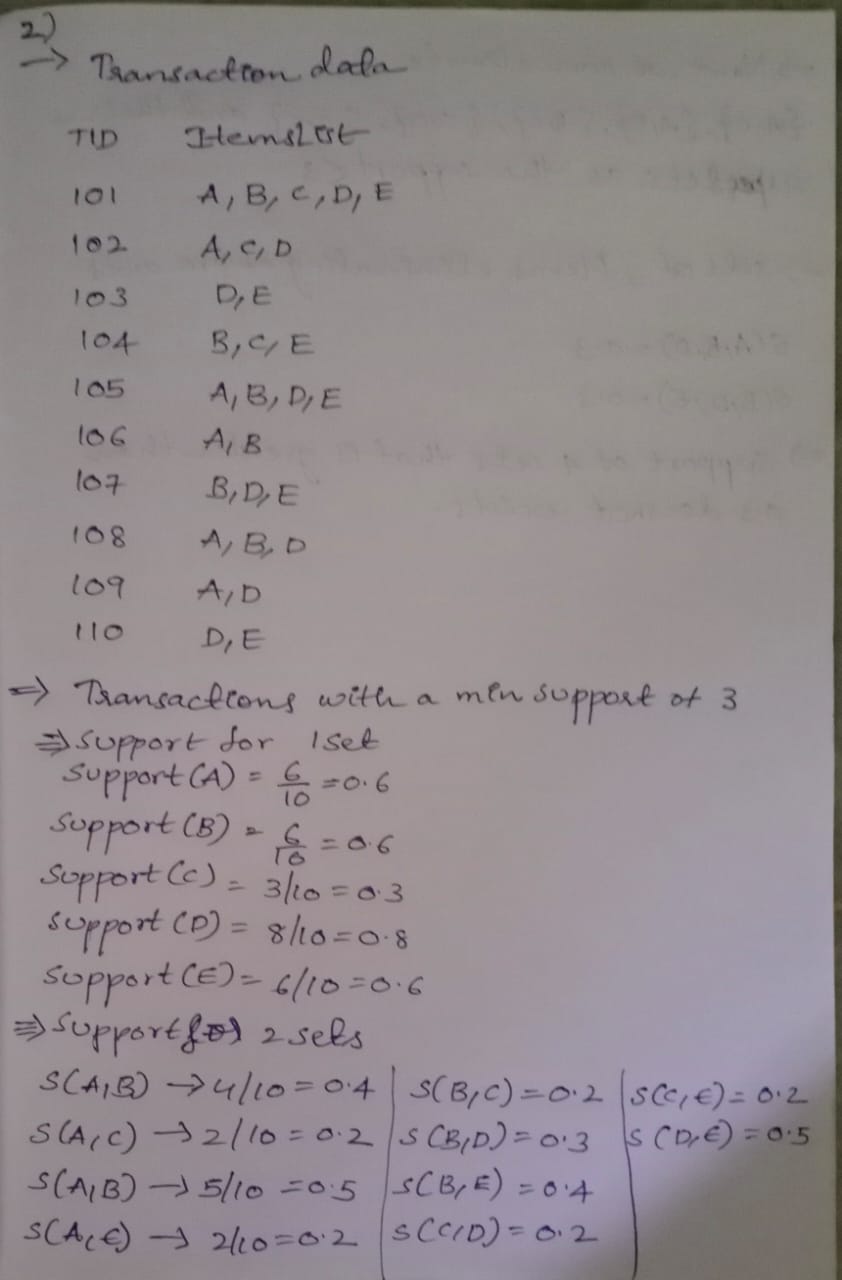 2)
→ Transaction data
TID Items List
101 A, B, C, D, E
102 A, C, D
103 D, E
104 B, C, E
105 A, B, D, E
106 A, B
107 B, D, E
108 A, B, D
109 A, D
110 D, E
⇒ Transactions with a min support of 3
⇒ Support for 1 set
Support (A) = 6/10 = 0.6
Support (B) = 6/10 = 0.6
Support (C) = 3/10 = 0.3
Support (D) = 8/10 = 0.8
Support (E) = 6/10 = 0.6
⇒ Support for 2 sets
S(A,B) → 4/10 = 0.4 | S(B,C) = 0.2 | S(C,E) = 0.2
S(A,C) → 2/10 = 0.2 | S(B,D) = 0.3 | S(D,E) = 0.5
S(A,B) → 5/10 = 0.5 | S(B,E) = 0.4
S(A,E) → 2/10 = 0.2 | S(C,D) = 0.2